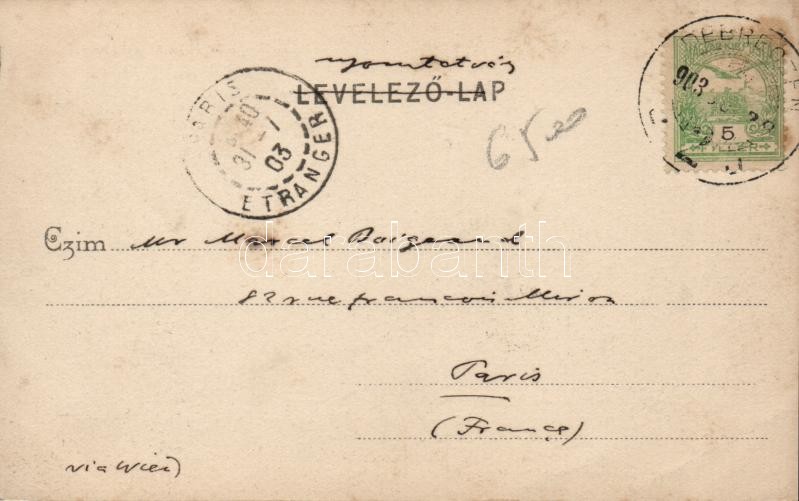 nyomtatvány
LEVELEZŐ-LAP
DEBRECZEN
903
5
FILLÉR
PARIS
31 - 1
03
ETRANGER
6500
Czim Mr Marcel
82 rue francois Miron
Paris
(France)
via Wien
darabanth